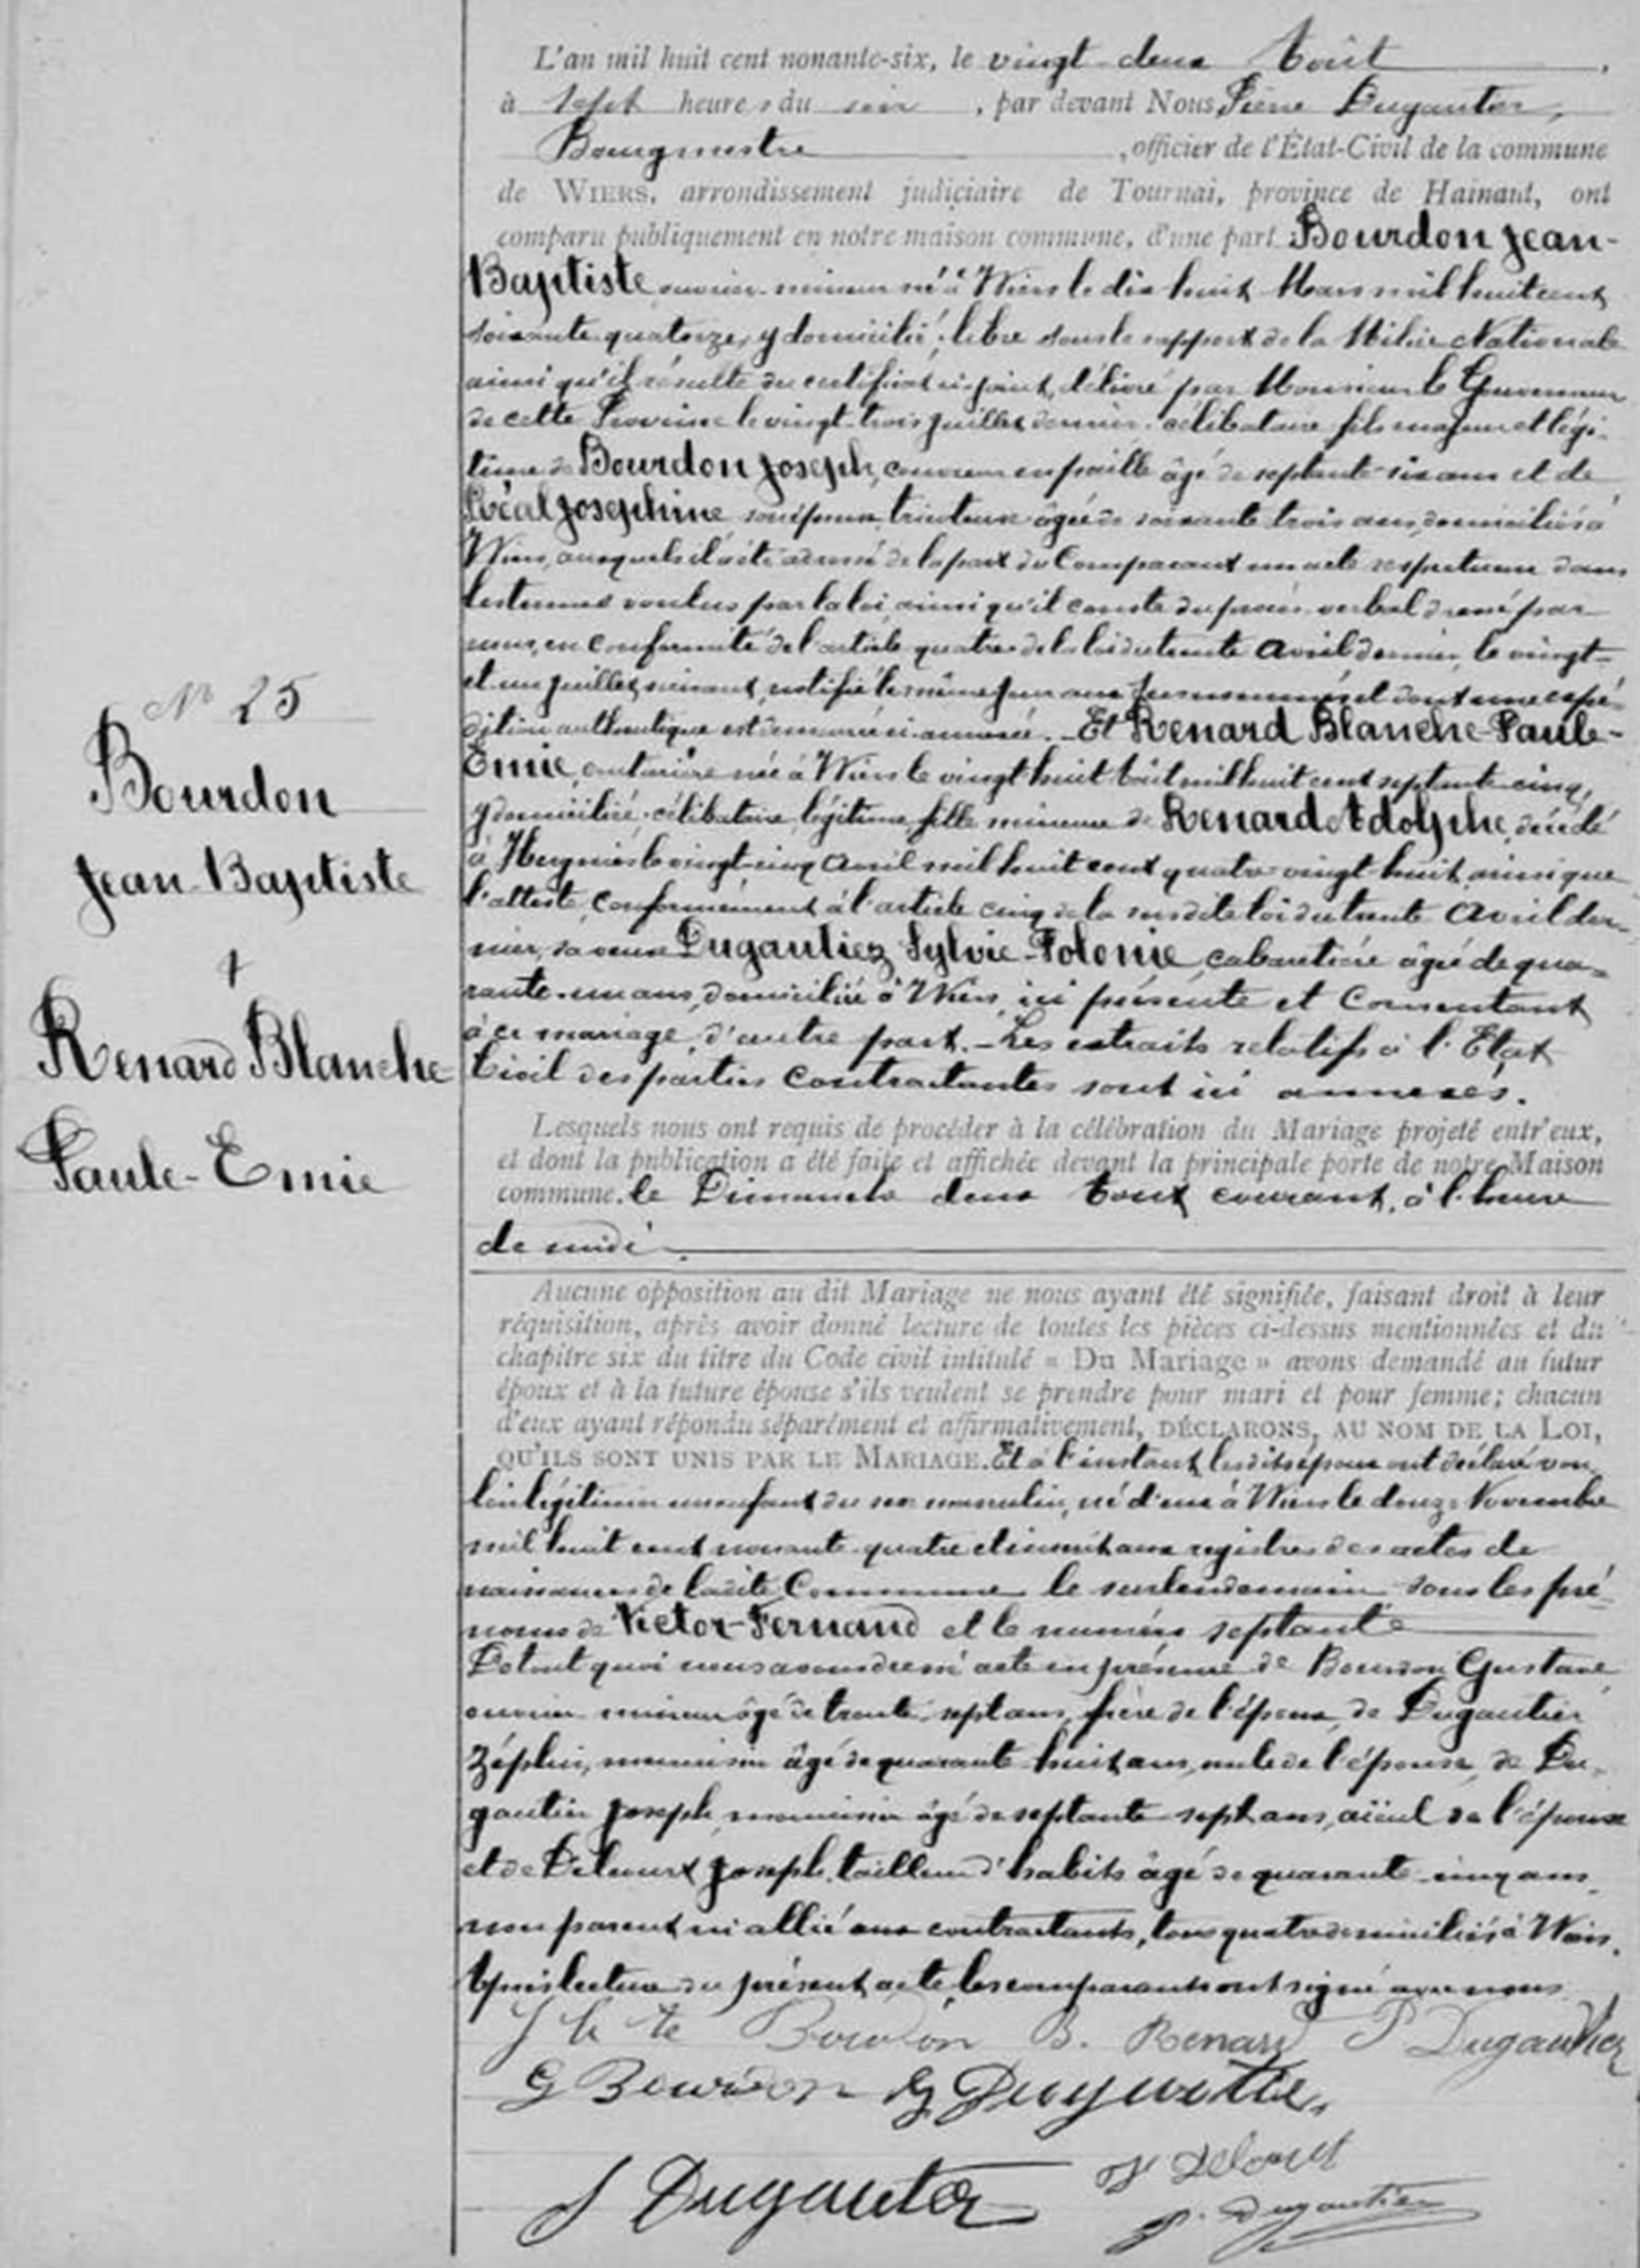 N° 25
Bourdon
Jean-Baptiste
+
Renard Blanche
Paule-Emie
L'an mil huit cent nonante-six, le vingt-deux Août,
à sept heures du soir, par devant Nous, Pierre Dugautier,
Bourgmestre, officier de l'État-Civil de la commune
de WIERS, arrondissement judiciaire de Tournai, province de Hainaut, ont
comparu publiquement en notre maison commune, d'une part Bourdon Jean-
Baptiste ouvrier mineur né à Wiers le dix huit Mars mil huit cent
soixante quatorze, y domicilié, libre sous le rapport de la Milice Nationale
ainsi qu'il résulte du certificat ci-joint, délivré par Monsieur le Gouverneur
de cette Province le vingt-trois juillet dernier, célibataire, fils majeur et légi-
time de Bourdon Joseph, couvreur en paille âgé de septante-six ans et de
Réal Josephine son épouse, tricoteuse âgée de soixante trois ans, domiciliés à
Wiers, auxquels il a été adressé de la part du Comparant un acte respectueux dans
les termes voulus par la loi, ainsi qu'il conste du procès verbal dressé par
nous, en conformité de l'article quatre de la loi du trente Avril dernier, le vingt-
et-un juillet suivant, notifié le même jour aux susnommés et dont une expé-
dition authentique est demeurée ci-annexée. - Et Renard Blanche-Paule-
Emie, couturière née à Wiers le vingt huit Août mil huit cent septante-cinq,
y domiciliée, célibataire, légitime, fille mineure de Renard Adolphe, décédé
à Hergnies le vingt-cinq Avril mil huit cent quatre-vingt-huit, ainsi que
l'atteste, conformément à l'article cinq de la susdite loi du trente Avril der-
nier, sa veuve Dugautiez Sylvie-Polonie, cabaretière âgée de qua-
rante-un ans, domiciliée à Wiers, ici présente et Consentant
à ce mariage, d'autre part. - Les extraits relatifs à l'Etat
Civil des parties Contractantes sont ici annexés.
Lesquels nous ont requis de procéder à la célébration du Mariage projeté entr'eux,
et dont la publication a été faite et affichée devant la principale porte de notre Maison
commune, le Dimanche deux Août courant, à l'heure
de midi.
Aucune opposition au dit Mariage ne nous ayant été signifiée, faisant droit à leur
réquisition, après avoir donné lecture de toutes les pièces ci-dessus mentionnées et du
chapitre six du titre du Code civil intitulé « Du Mariage » avons demandé au futur
époux et à la future épouse s'ils veulent se prendre pour mari et pour femme; chacun
d'eux ayant répondu séparément et affirmativement, DÉCLARONS, AU NOM DE LA LOI,
QU'ILS SONT UNIS PAR LE MARIAGE. Et à l'instant, lesdits époux ont déclaré vou-
loir légitimer un enfant du sexe masculin, né d'eux à Wiers le douze Novembre
mil huit cent nonante-quatre et inscrit aux registres des actes de
naissances de ladite Commune le surlendemain sous les pré-
noms de Victor-Fernand et le numéro septante
De tout quoi nous avons dressé acte en présence de Bourdon Gustave,
ouvrier mineur âgé de trente-sept ans, frère de l'époux, de Dugautier
Zéphir, menuisier âgé de quarante-huit ans, oncle de l'épouse, de Du-
gautier Joseph, menuisier âgé de septante-sept ans, aïeul de l'épouse
et de Delcourt Joseph, tailleur d'habits âgé de quarante-cinq ans,
non parent ni allié aux contractants, tous quatre domiciliés à Wiers.
Après lecture du présent acte, les comparants ont signé avec nous
J Bte Bourdon B. Renard P Dugautiez
G Bourdon Z Dugautier
J Dugautier J Delcourt
P. Dugautier